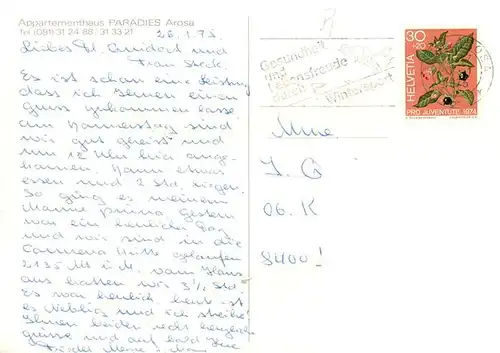 Appartementhaus PARADIES Arosa
Tel (081) 31 24 88/ 31 33 21
26.1.75.
Liebes Frl.
Frau Steck.
Es ist schon eine Leistung
dass ich Ihnen einen
Gruss zukommen lasse
am Donnerstag sind
wir gut gereist und
um 12 Uhr hier ange-
kommen. Dann etwas
essen und 2 Std. liegen.
So ging es meinem
Manne prima. Gestern
war ein herrlicher Tag
und wir sind in die
Carmena Hütte gelaufen
2135 M ü M. vom Haus
aus hatten wir 3½ Std.
Es war herrlich heute ist
es neblig und ich
Ihnen beiden recht herzliche
grüsse und auf bald Ihre
Gesundheit
und
Lebensfreude
durch
Wintersport
HELVETIA
30
+20
PRO JUVENTUTE 1974
Mme
J. G
06. K
8400!